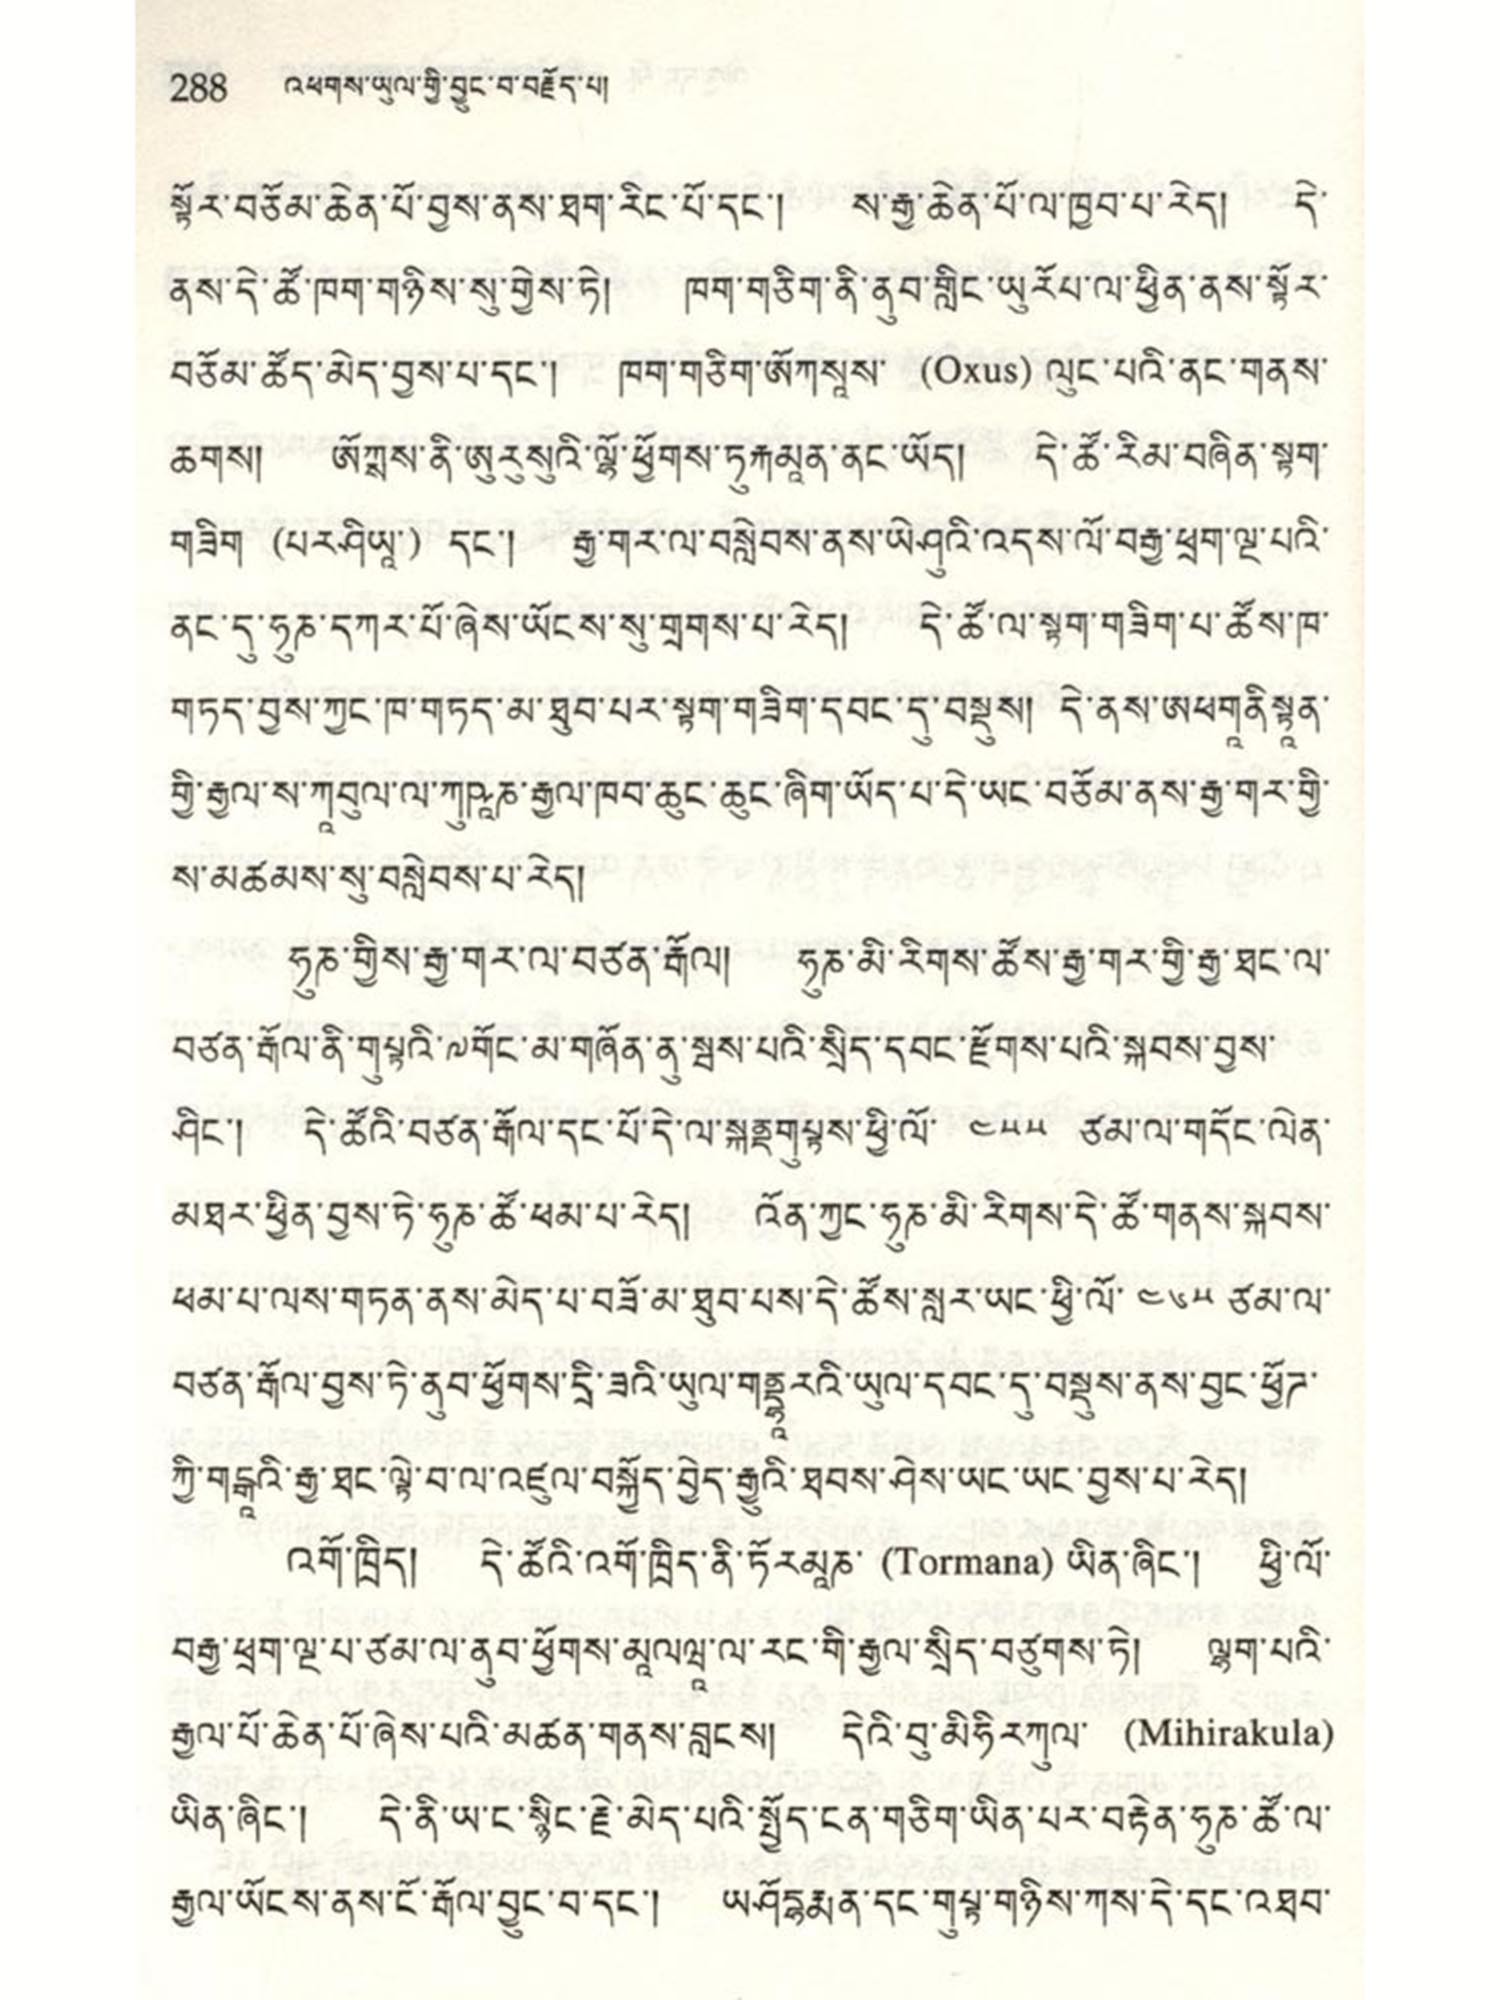 288 འཕགས་ཡུལ་གྱི་བྱུང་བ་བརྗོད་པ།
སྟོར་བཅོམ་ཆེན་པོ་བྱས་ནས་ཐག་རིང་པོ་དང་། ས་རྒྱ་ཆེན་པོ་ལ་ཁྱབ་པ་རེད། དེ་
ནས་དེ་ཚོ་ཁག་གཉིས་སུ་གྱེས་ཏེ། ཁག་གཅིག་ནི་ནུབ་གླིང་ཡུརོཔ་ལ་ཕྱིན་ནས་སྟོར་
བཅོམ་ཚོད་མེད་བྱས་པ་དང་། ཁག་གཅིག་ཨོཀསཱས་ (Oxus) ལུང་པའི་ནང་གནས་
ཆགས། ཨོཀྶས་ནི་ཨུརུསུའི་ལྷོ་ཕྱོགས་ཏུརྐམཱན་ནང་ཡོད། དེ་ཚོ་རིམ་བཞིན་སྟག་
གཟིག (པརཤིཡཱ་) དང་། རྒྱ་གར་ལ་བསླེབས་ནས་ཡེ་ཤུའི་འདས་ལོ་བརྒྱ་ཕྲག་ལྔ་པའི་
ནང་དུ་ཧུཎ་དཀར་པོ་ཞེས་ཡོངས་སུ་གྲགས་པ་རེད། དེ་ཚོ་ལ་སྟག་གཟིག་པ་ཚོས་ཁ་
གཏད་བྱས་ཀྱང་ཁ་གཏད་མ་ཐུབ་པར་སྟག་གཟིག་དབང་དུ་བསྡུས། དེ་ནས་ཨཕགཱནིསྟཱན་
གྱི་རྒྱལ་ས་ཀཱབུལ་ལ་ཀུཥཱཎ་རྒྱལ་ཁབ་ཆུང་ཆུང་ཞིག་ཡོད་པ་དེ་ཡང་བཅོམ་ནས་རྒྱ་གར་གྱི་
ས་མཚམས་སུ་བསླེབས་པ་རེད།
ཧུཎ་གྱིས་རྒྱ་གར་ལ་བཙན་རྒོལ། ཧུཎ་མི་རིགས་ཚོས་རྒྱ་གར་གྱི་རྒྱ་ཐང་ལ་
བཙན་རྒོལ་ནི་གུཔྟའི་༧གོང་མ་གཞོན་ནུ་སྦས་པའི་སྲིད་དབང་རྫོགས་པའི་སྐབས་བྱས་
ཤིང་། དེ་ཚོའི་བཙན་རྒོལ་དང་པོ་དེ་ལ་སྐནྡགུཔྟས་ཕྱི་ལོ་ ༤༥༥ ཙམ་ལ་གདོང་ལེན་
མཐར་ཕྱིན་བྱས་ཏེ་ཧུཎ་ཚོ་ཕམ་པ་རེད། འོན་ཀྱང་ཧུཎ་མི་རིགས་དེ་ཚོ་གནས་སྐབས་
ཕམ་པ་ལས་གཏན་ནས་མེད་པ་བཟོ་མ་ཐུབ་པས་དེ་ཚོས་སླར་ཡང་ཕྱི་ལོ་ ༤༦༥ ཙམ་ལ་
བཙན་རྒོལ་བྱས་ཏེ་ནུབ་ཕྱོགས་དྲི་ཟའི་ཡུལ་གནྡྷཱརའི་ཡུལ་དབང་དུ་བསྡུས་ནས་བྱང་ཕྱོཊ་
ཀྱི་གངྒཱའི་རྒྱ་ཐང་ལྟེ་བ་ལ་འཛུལ་བསྐྱོད་བྱེད་རྒྱུའི་ཐབས་ཤེས་ཡང་ཡང་བྱས་པ་རེད།
འགོ་ཁྲིད། དེ་ཚོའི་འགོ་ཁྲིད་ནི་ཏོརམཱཎ་ (Tormana) ཡིན་ཞིང་། ཕྱི་ལོ་
བརྒྱ་ཕྲག་ལྔ་པ་ཙམ་ལ་ནུབ་ཕྱོགས་མཱལཝཱ་ལ་རང་གི་རྒྱལ་སྲིད་བཙུགས་ཏེ། ལྷག་པའི་
རྒྱལ་པོ་ཆེན་པོ་ཞེས་པའི་མཚན་གནས་བླངས། དེའི་བུ་མིཧིརཀུལ་ (Mihirakula)
ཡིན་ཞིང་། དེ་ནི་ཡ་ང་སྙིང་རྗེ་མེད་པའི་སྤྱོད་ངན་གཅིག་ཡིན་པར་བརྟེན་ཧུཎ་ཚོ་ལ་
རྒྱལ་ཡོངས་ནས་ངོ་རྒོལ་བྱུང་བ་དང་། ཡཤོདྷརྨན་དང་གུཔྟ་གཉིས་ཀས་དེ་དང་འཐབ་